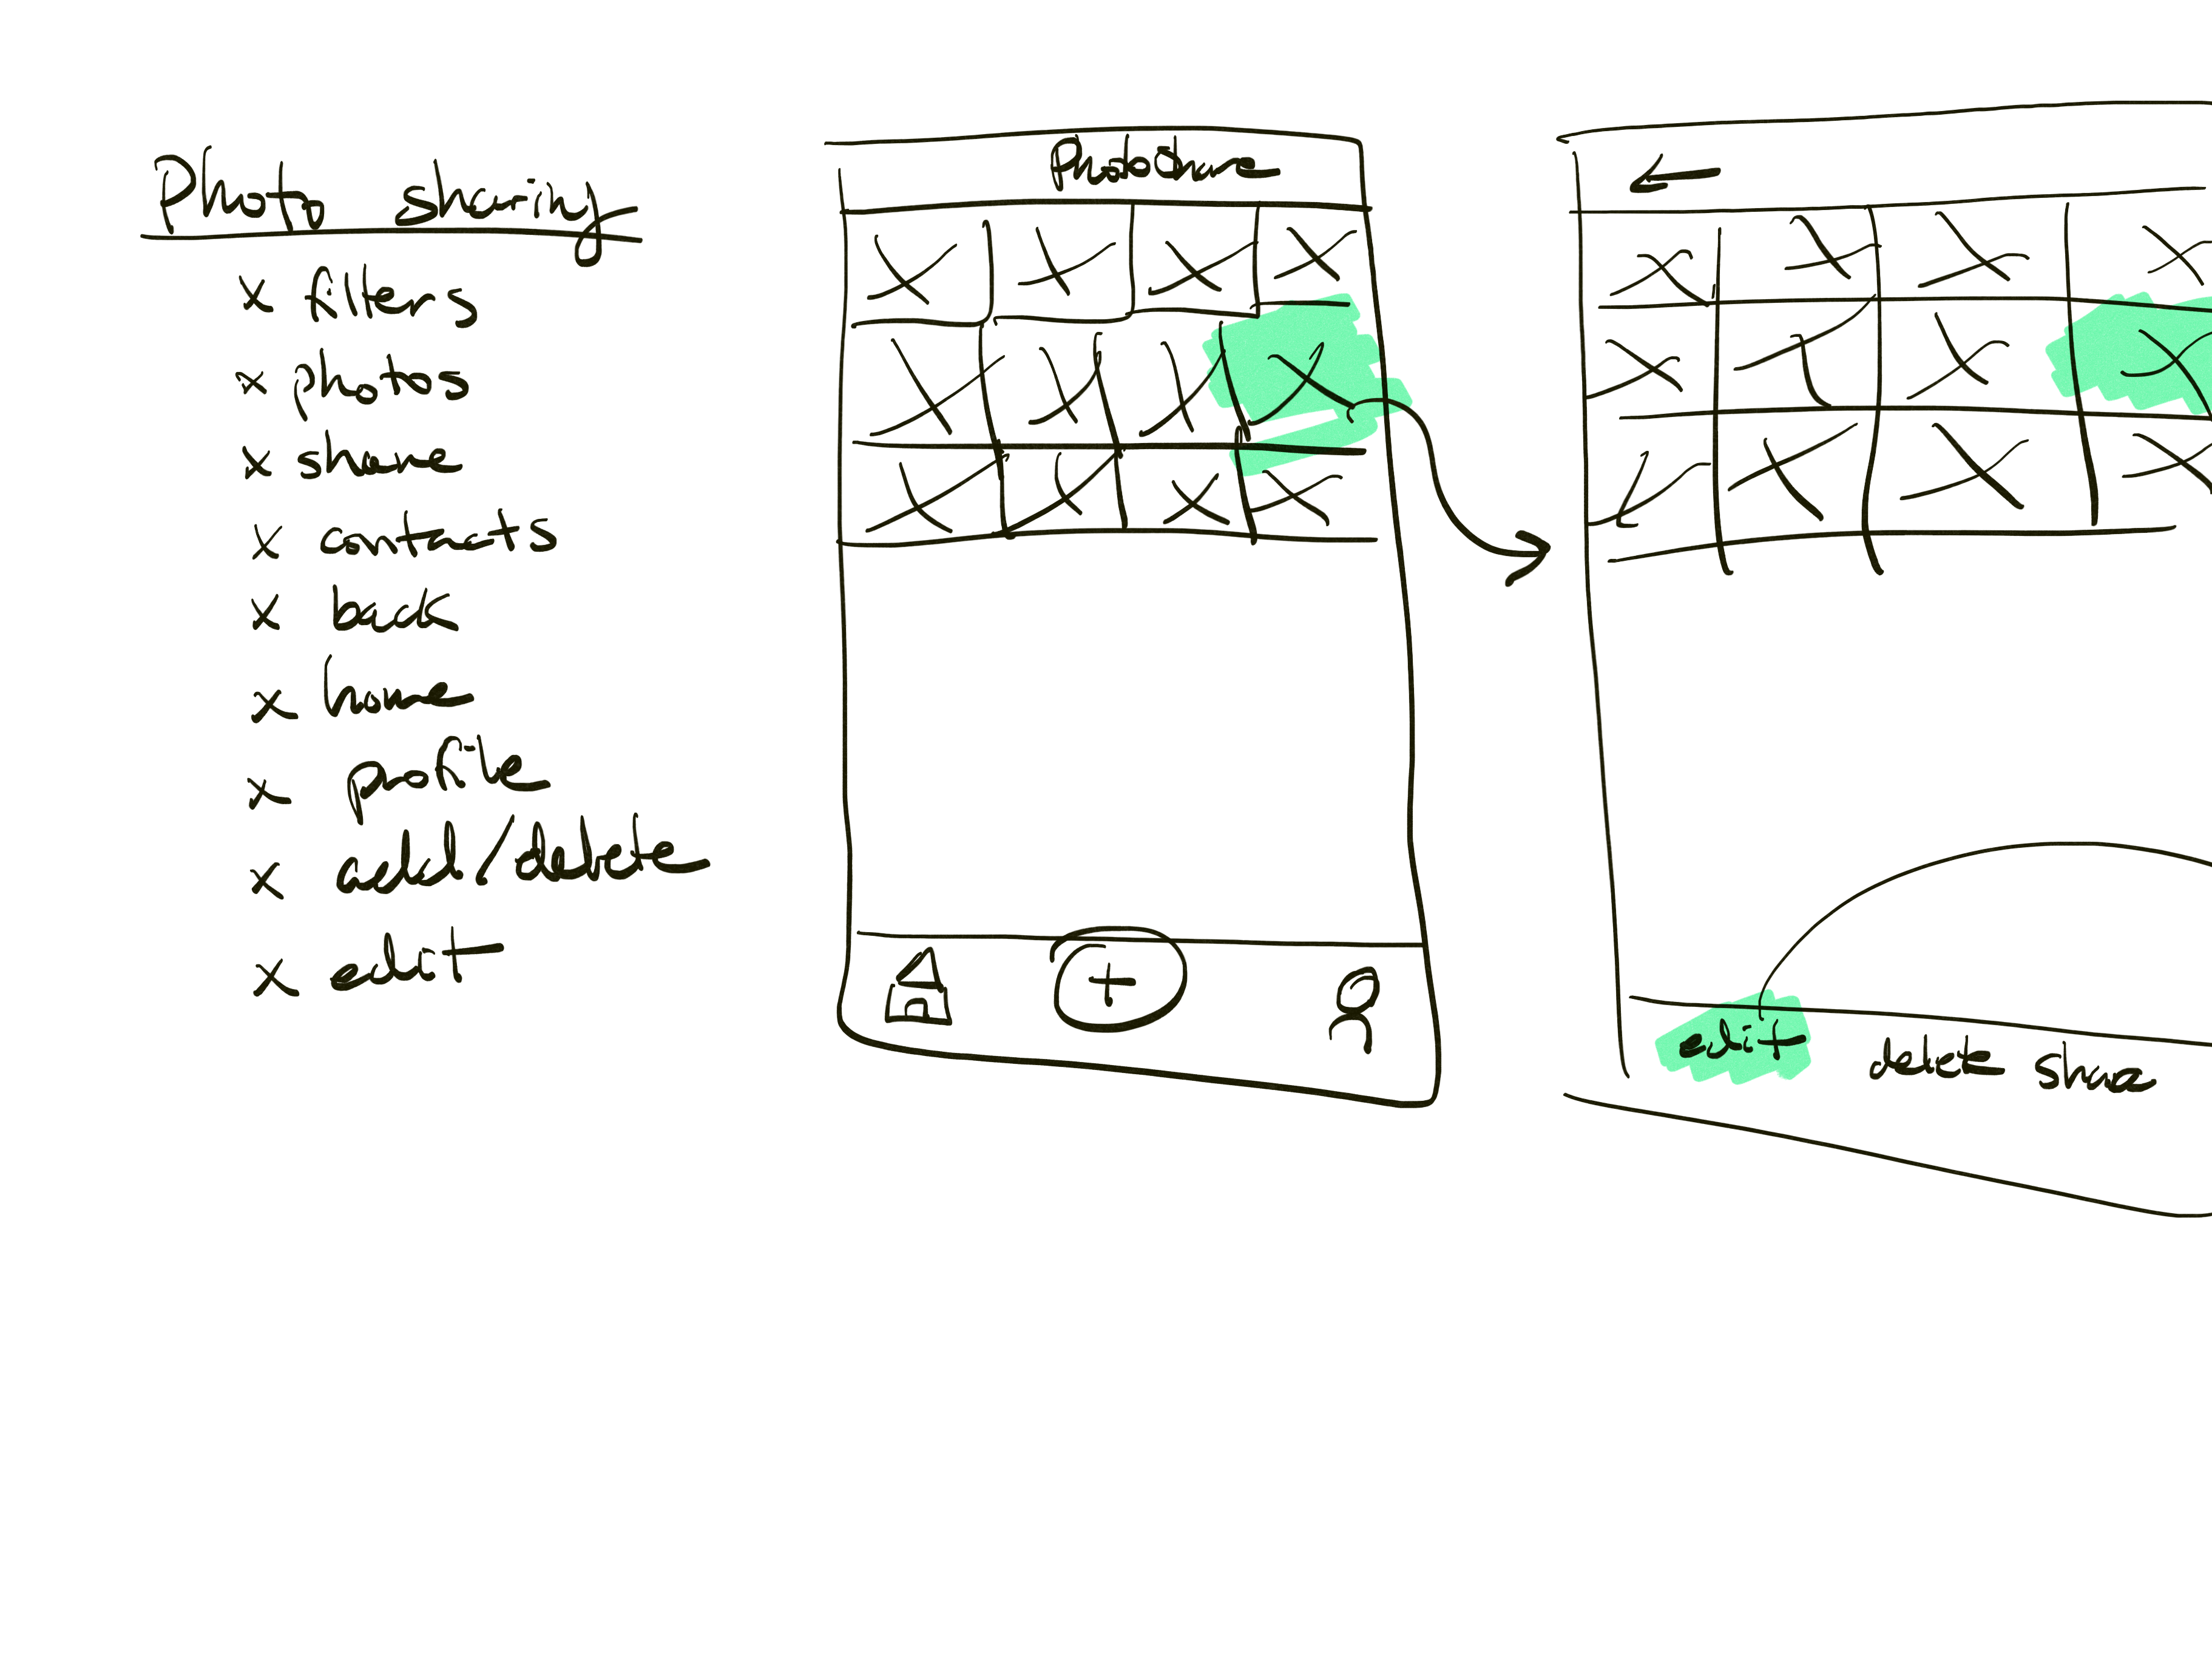 Photo sharing
x filters
x photos
x share
x contacts
x back
x home
x profile
x add/delete
x edit
PhotoShare
+
edit delete share